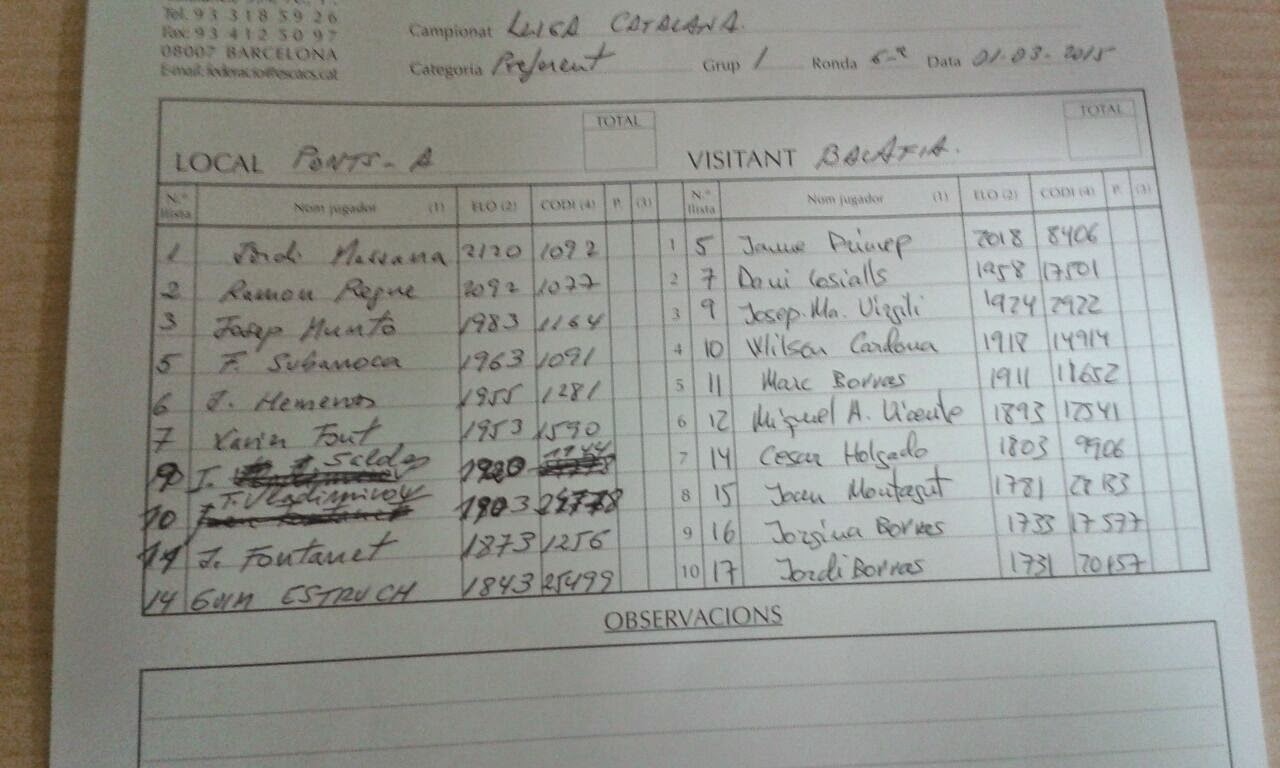 Tel. 93 318 59 26
Fax: 93 412 50 97
08007 BARCELONA
E-mail: federacio@escacs.cat
Campionat LLIGA CATALANA.
Categoria Preferent Grup 1 Ronda 6-ª Data 01-03-2015
LOCAL PONTS-A TOTAL VISITANT BALAFIA. TOTAL
N.º llista Nom jugador (1) ELO (2) CODI (4) P. (3) N.º llista Nom jugador (1) ELO (2) CODI (4) P. (3)
1 Jordi Massana 2120 1092 1 5 Jaume 2018 8406
2 Ramon Regue 2092 1077 2 7 Davi Cosialls 1958 17501
3 Josep Munto 1983 1164 3 9 Josep. Ma. Virgili 1924 2922
5 F. Subanoca 1963 1091 4 10 Wilson Cardona 1918 14914
6 J. 1955 1281 5 11 Marc Borras 1911 11652
7 Xavier Font 1953 1590 6 12 Miquel A. Vicente 1893
9 J. 1920 7 14 Cesar Holgado 1803 9906
10 T. Vladimirov 1903 24778 8 15 Joan Montagut 1781
J. Fontanet 1873 1256 9 16 Jorgina Borras 1733 17577
14 Guim ESTRUCH 1843 25499 10 17 Jordi Borras 1731 20157
OBSERVACIONS